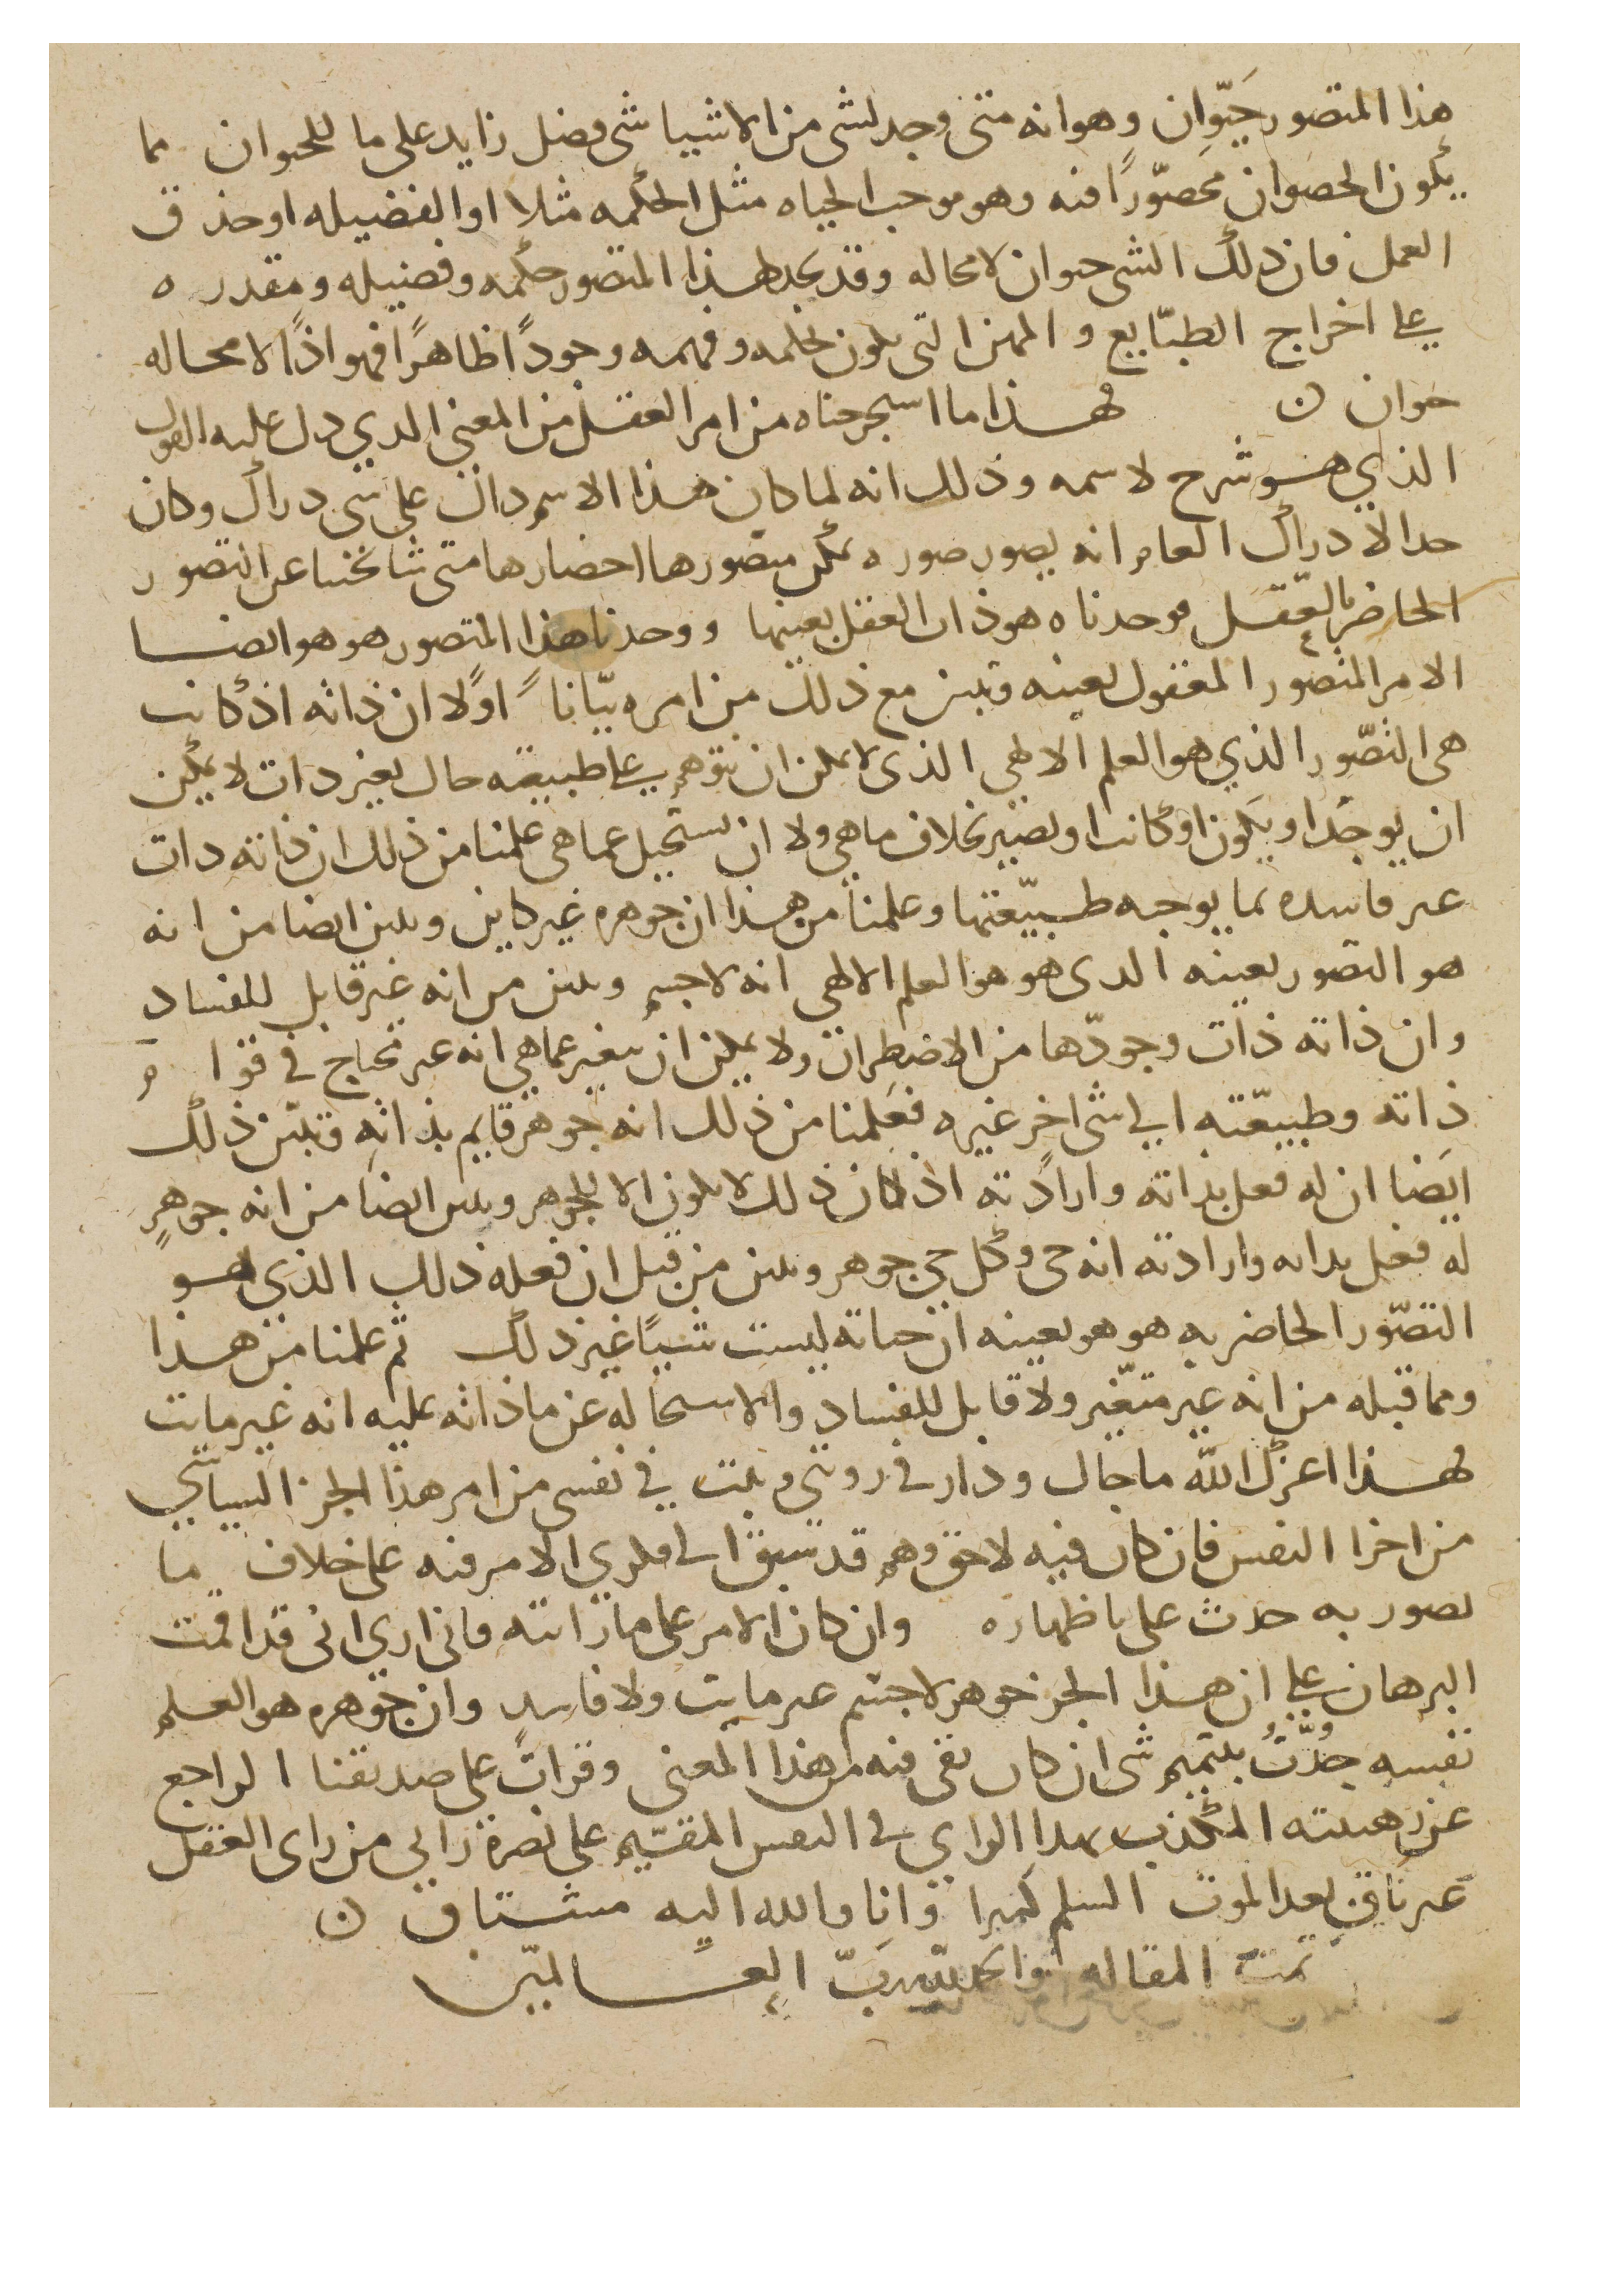 هذا المتصور حَيّوان وهو انه متى وجد لشى من الاشيا شى فضل زايد على ما للحيوان مما
يكون الحصوان محصّورًا فيه وهو موجب الحياه مثل الحكمه مثلا او الفضيله او حذق
العمل فان ذلك الشى حيوان لا محاله وقد نجد لهذا المتصور حكمه وفضيله ومقدره
على اخراج الطبّايع و المهن التى يكون بحكمه وفهمه وجودًا ظاهرًا فهو اذًا لا محاله
حيوان ن فهذا ما استخرجناه من امر العقل من المعنى الدي دل عليه القول
الذي هو شرح لاسمه وذلك انه لما كان هذا الاسم دالّ على شى دراك وكان
حد الادراك العام انه يصور صوره يمكن متصورها احضارها متى شا بحثنا عن التصور
الحاضر بالعّقل فوجدناه هو ذات العقل بعينها ووجدنا هذا المتصور هو هو ايضا
الامر المتصور المعقول بعينه وتبين مع ذلك من امره بيّاناً اولًا ان ذاته اذ كانت
هى التصّور الذي هو العلم الالهي الذى لا يمكن ان يتوهم على طبيعته حال بغير ذات لا يمكن
ان يوجدا ويكون او كانت او تصير بخلاف ما هي ولا ان تستحيل عما هى علمنا من ذلك ان ذاته دات
غير فاسده بما يوجبه طبيّعتها وعلمنا من هذا ان جوهره غير كاين وتبين ايضا من انه
هو التصور بعينه الدى هو هو العلم الالهى انه لا جسم وتبين من انه غير قابل للفساد
وان ذاته ذات وجودّها من الاضطرار ولا يمكن ان يتغير عما هي انه غير محتاج في قوام
ذاته وطبيعّته الي شى اخر غيره فعلمنا من ذلك انه جوهر قايم بذاته وتبيّن ذلك
ايضا ان له فعل بذاته وارادته اذ كان ذلك لا يكون الا للجوهر وتبين ايضا من انه جوهرٍ
له فعل بذاته وارادته انه حى وكل حي جوهر وتبين من قبل ان فعله ذلك الذي هو
التصّور الحاضر به هو هو بعينه ان حياته ليست شيًا غير ذلك ثم علمنا من هذا
ومما قبله من انه غير متغّير ولا قابل للفساد والاستحاله عن ما ذاته عليه انه غير مايت
فهذا اعزك الله ما جال ودار في رويتي وثبت في نفسى من امر هذا الجز السياسي
من اجزا النفس فان كان فيه لاحق وهم قد سبق الى فكري الامر فيه على خلاف ما
تصور به جدت على باظهاره وان كان الامر على ما راىته فانى اري انى قد اقمت
البرهان على ان هذا الجز جوهر لا جسم غير مايت ولا فاسد وان جوهره هو العلم
نفسه جُدّتُ بتتميم شى ان كان بقى فيه من هذا المعنى وقرات على صديقنا الراجع
عن رهبنته المكذب بهذا الراي في النفس المقسّيم على نصرة رايي من راى العقل
غير باقٍ بعد الموت السلم كثيرا وانا والله اليه مشتاق ن
تمت المقاله والحمد لله ربّ العالميّن